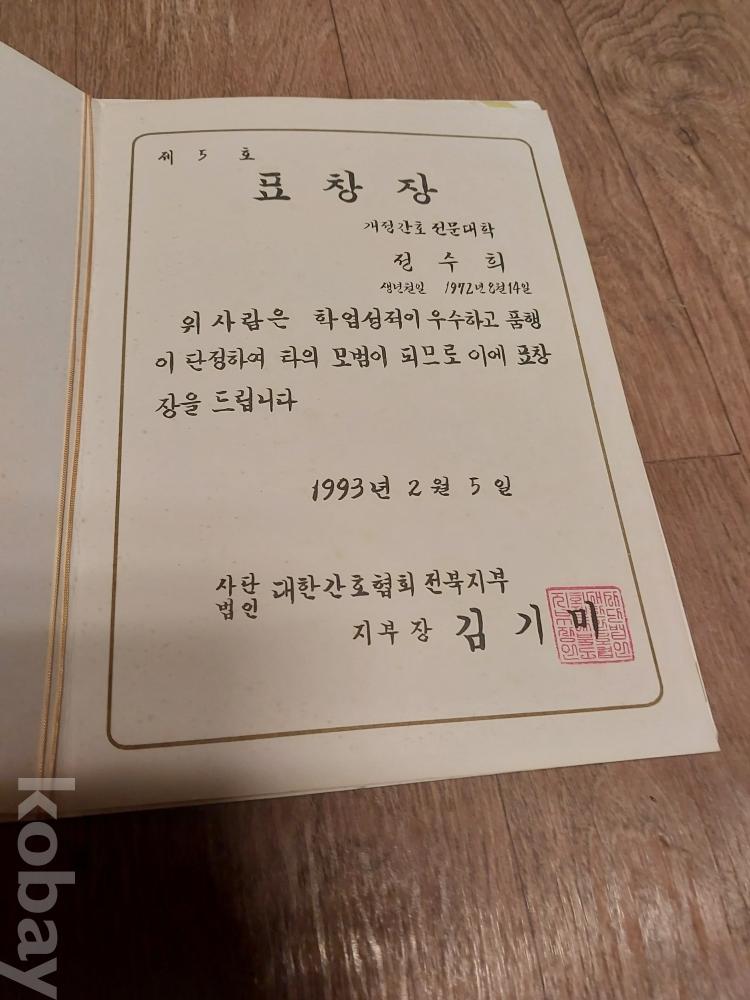 제 5 호
표 창 장
개정간호전문대학
정 수 희
생년월일 1972년 8월 14일
위 사람은 학업성적이 우수하고 품행
이 단정하여 타의 모범이 되므로 이에 표창
장을 드립니다
1993년 2월 5일
사단법인 대한간호협회 전북지부
지부장 김 기 미
kobay